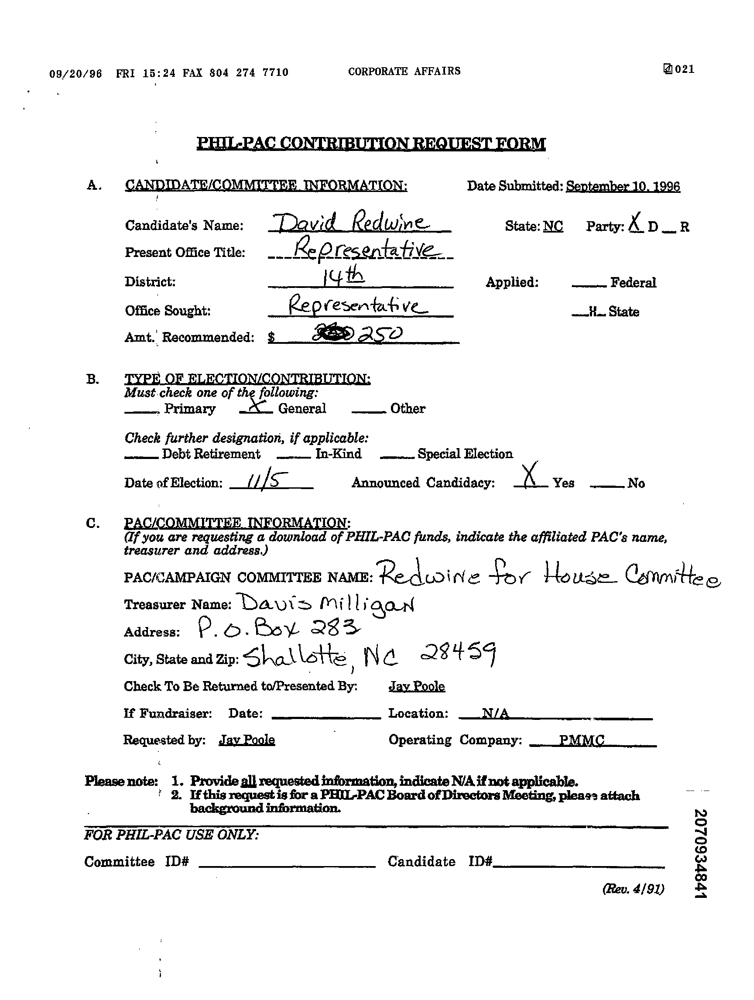 09/20/96 FRI 15:24 FAX 804 274 7710 CORPORATE AFFAIRS 021
PHIL-PAC CONTRIBUTION REQUEST FORM
A. CANDIDATE/COMMITTEE INFORMATION: Date Submitted: September 10, 1996
Candidate's Name: David Redwine State: NC Party: X D __ R
Present Office Title: Representative
District: 14th Applied: ____ Federal
Office Sought: Representative __X__ State
Amt. Recommended: $ 250
B. TYPE OF ELECTION/CONTRIBUTION:
Must check one of the following:
____ Primary __X__ General ____ Other
Check further designation, if applicable:
____ Debt Retirement ____ In-Kind ____ Special Election
Date of Election: 11/5 Announced Candidacy: X Yes ____ No
C. PAC/COMMITTEE INFORMATION:
(If you are requesting a download of PHIL-PAC funds, indicate the affiliated PAC's name,
treasurer and address.)
PAC/CAMPAIGN COMMITTEE NAME: Redwine for House Committee
Treasurer Name: Davis Milligan
Address: P.O. Box 283
City, State and Zip: Shallotte, NC 28459
Check To Be Returned to/Presented By: Jay Poole
If Fundraiser: Date: ____________ Location: N/A
Requested by: Jay Poole Operating Company: PMMC
Please note: 1. Provide all requested information, indicate N/A if not applicable.
2. If this request is for a PHIL-PAC Board of Directors Meeting, please attach
background information.
FOR PHIL-PAC USE ONLY:
Committee ID# ____________ Candidate ID# ____________
(Rev. 4/91)
2070934841